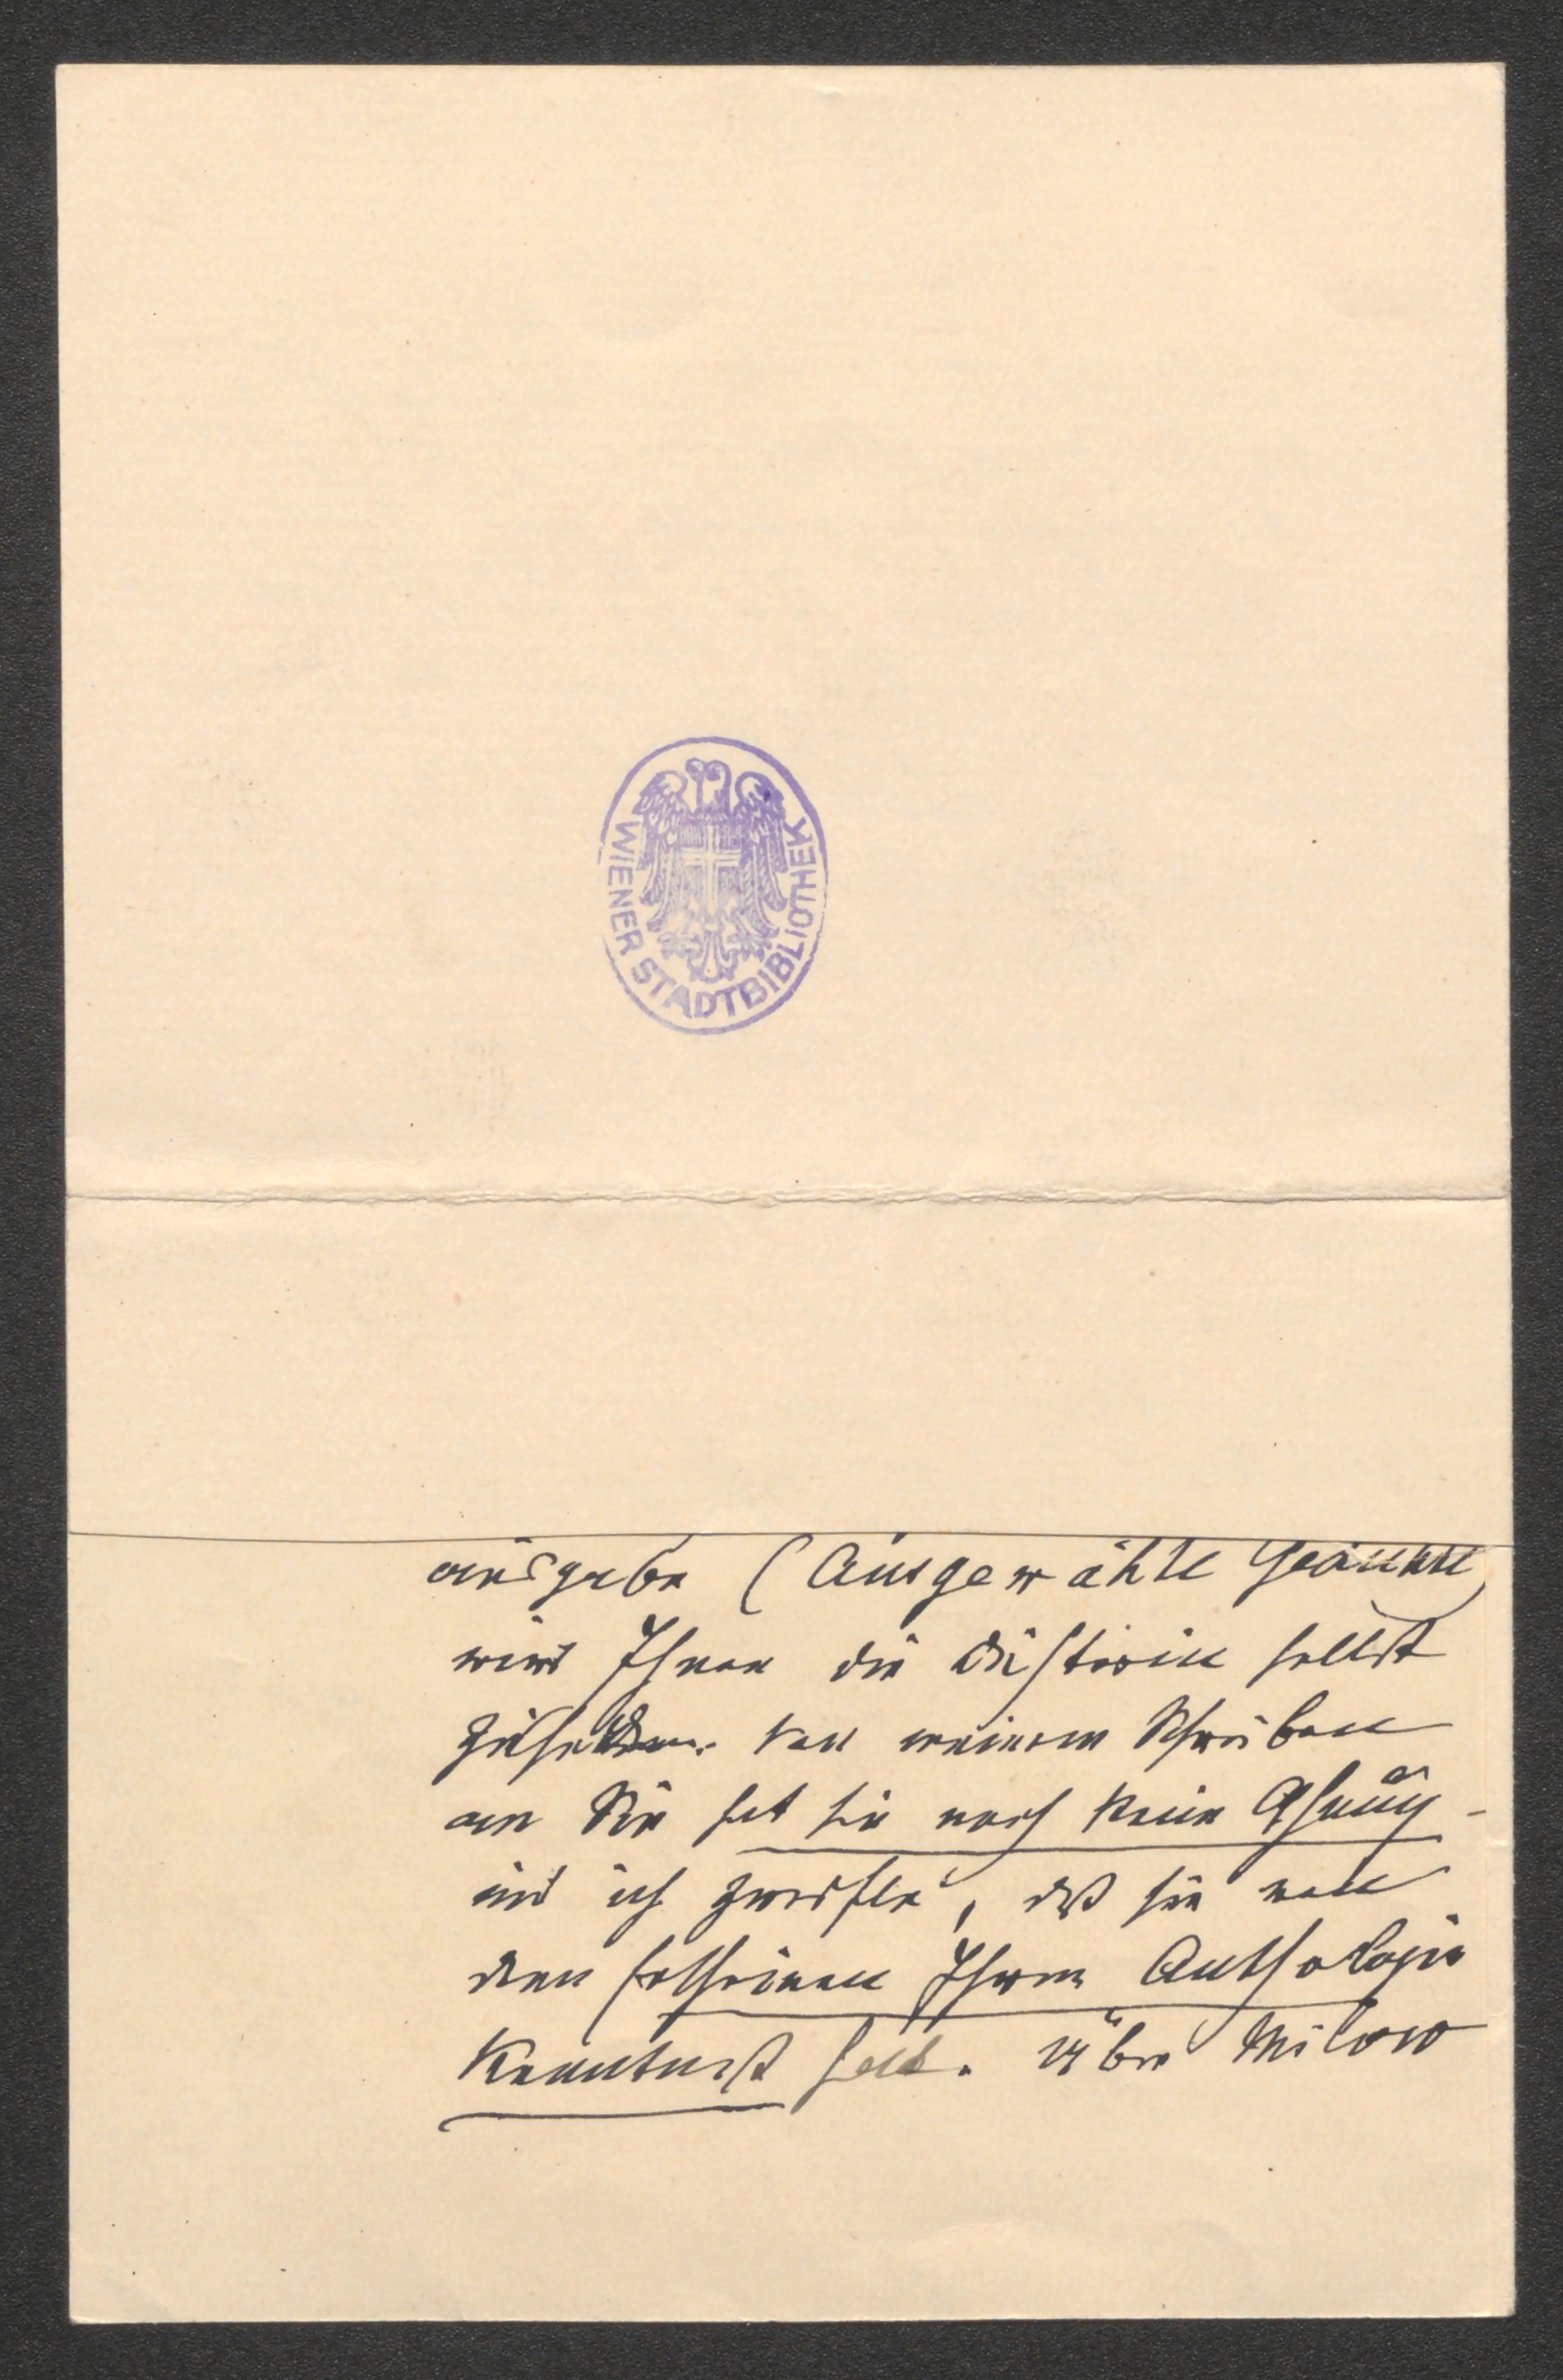 WIENER STADTBIBLIOTHEK
ausgabe (Ausgewählte Gedichte)
wird Ihnen die Dichterin selbst
zusenden. Von meinem Schreiben
an Sie hat sie noch keine Ahnung -
und ich zweifle, daß sie von
dem Erscheinen Ihrer Anthologie
Kenntniß hat. Über Milow